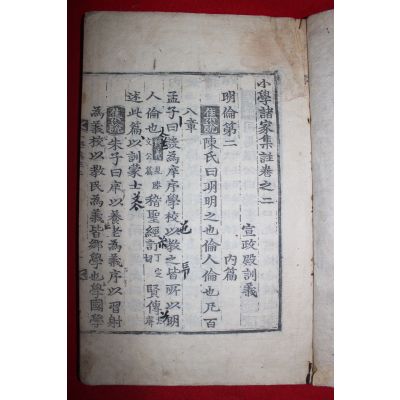 小學諸家集註卷之二
宣政殿訓義
明倫第二 內篇
集說 陳氏曰明明之也倫人倫也凡百
八章
孟子曰設為庠序學校以敎之皆所以明
人倫也 稽聖經訂 賢傳
述此篇以訓蒙士
集說 朱子曰庠以養老為義序以習射
為義校以敎民為義皆鄕學也學國學